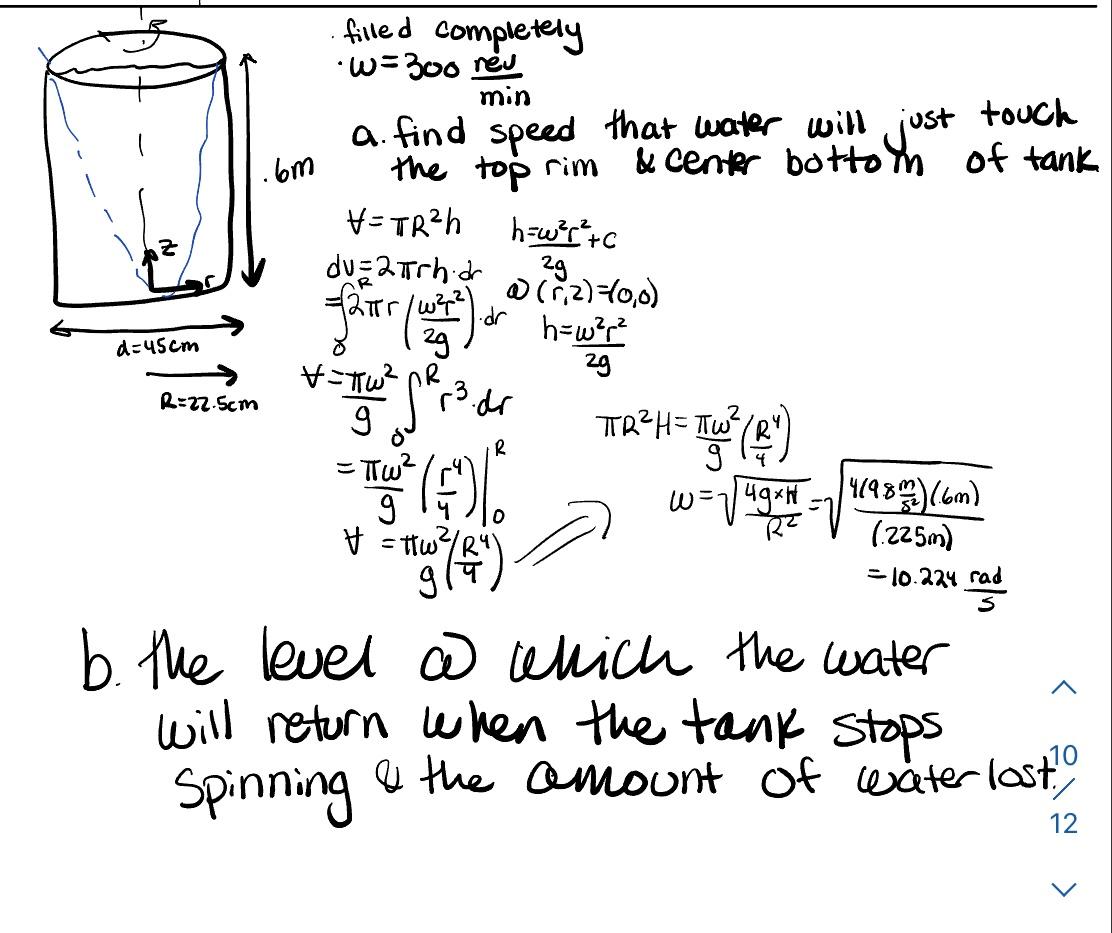 . filled completely
· ω=300 rev/min
a. find speed that water will just touch
the top rim & center bottom of tank
.6m
z
r
d=45cm
R=22.5cm
∀=πR²h
h=ω²r²/2g+C
dv=2πrh·dr
@ (r,z)=(0,0)
=∫₀ᴿ2πr(ω²r²/2g)·dr
h=ω²r²/2g
∀=πω²/g ∫₀ᴿ r³·dr
=πω²/g (r⁴/4)|₀ᴿ
∀ =πω²/g(R⁴/4)
πR²H=πω²/g(R⁴/4)
ω=√(4g×H/R²)=√(4(9.8 m/s²)(.6m)/(.225m))
=10.224 rad/s
b. the level @ which the water
will return when the tank stops
spinning & the amount of water lost.
10
/
12